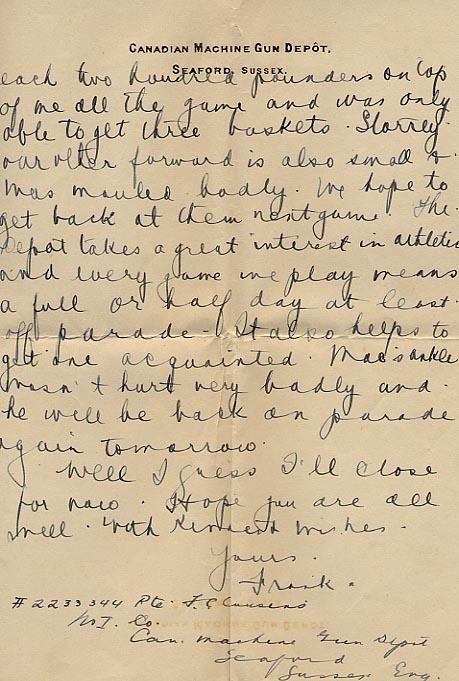 CANADIAN MACHINE GUN DEPÔT,
SEAFORD, SUSSEX.
each two hundred pounders on top
of me all the game and was only
able to get three baskets. Storrey
our other forward is also small &
was mauled badly. We hope to
get back at them next game. The
Depot takes a great interest in athletic
and every game we play means
a full or half day at least
off parade - It also helps to
get one acquainted. Mac's ankle
wasn't hurt very badly and
he will be back on parade
again tomorrow.
Well I guess I'll close
for now. Hope you are all
well. With Kindest Wishes.
Yours.
Frank.
# 2233344 Pte. F. C.
Co.
Can. Machine Gun Depot
Seaford
Sussex Eng.